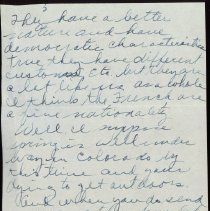 They have a better
nature and have
democratic characteristics
true they have different
customs, Etc but they are
a lot like us as a whole
I think the French are
a fine nationality
Well I suppose
spring is well under
way in Colorado by
this time and your
dying to get outdoors.
when you do send